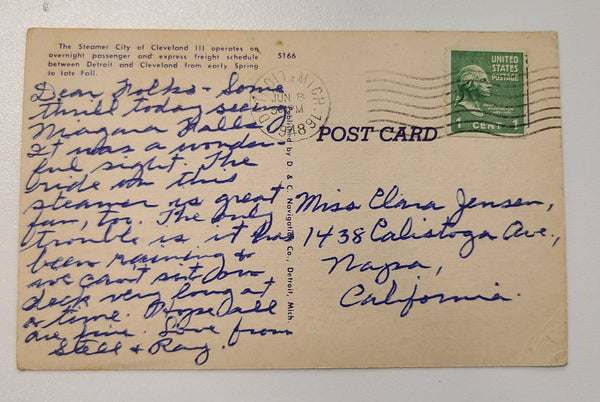 The Steamer City of Cleveland III operates on
overnight passenger and express freight schedule
between Detroit and Cleveland from early Spring
to late Fall.
5166
Dear Folks - Some
thrill today seeing
Niagara Falls.
It was a wonder-
ful sight. The
ride on this
steamer is great
fun, too. The only
trouble is it has
been raining &
we can't sit on
deck very long at
a time. Hope all
are fine. Love from
Stell & Ray.
Published by D. & C. Navigation Co., Detroit, Mich.
DETROIT, MICH. 16
JUN 8
PM
1948
UNITED
STATES
POSTAGE
1 CENT 1
POST CARD
Miss Clara Jensen,
1438 Calistoga Ave.,
Napa,
California.